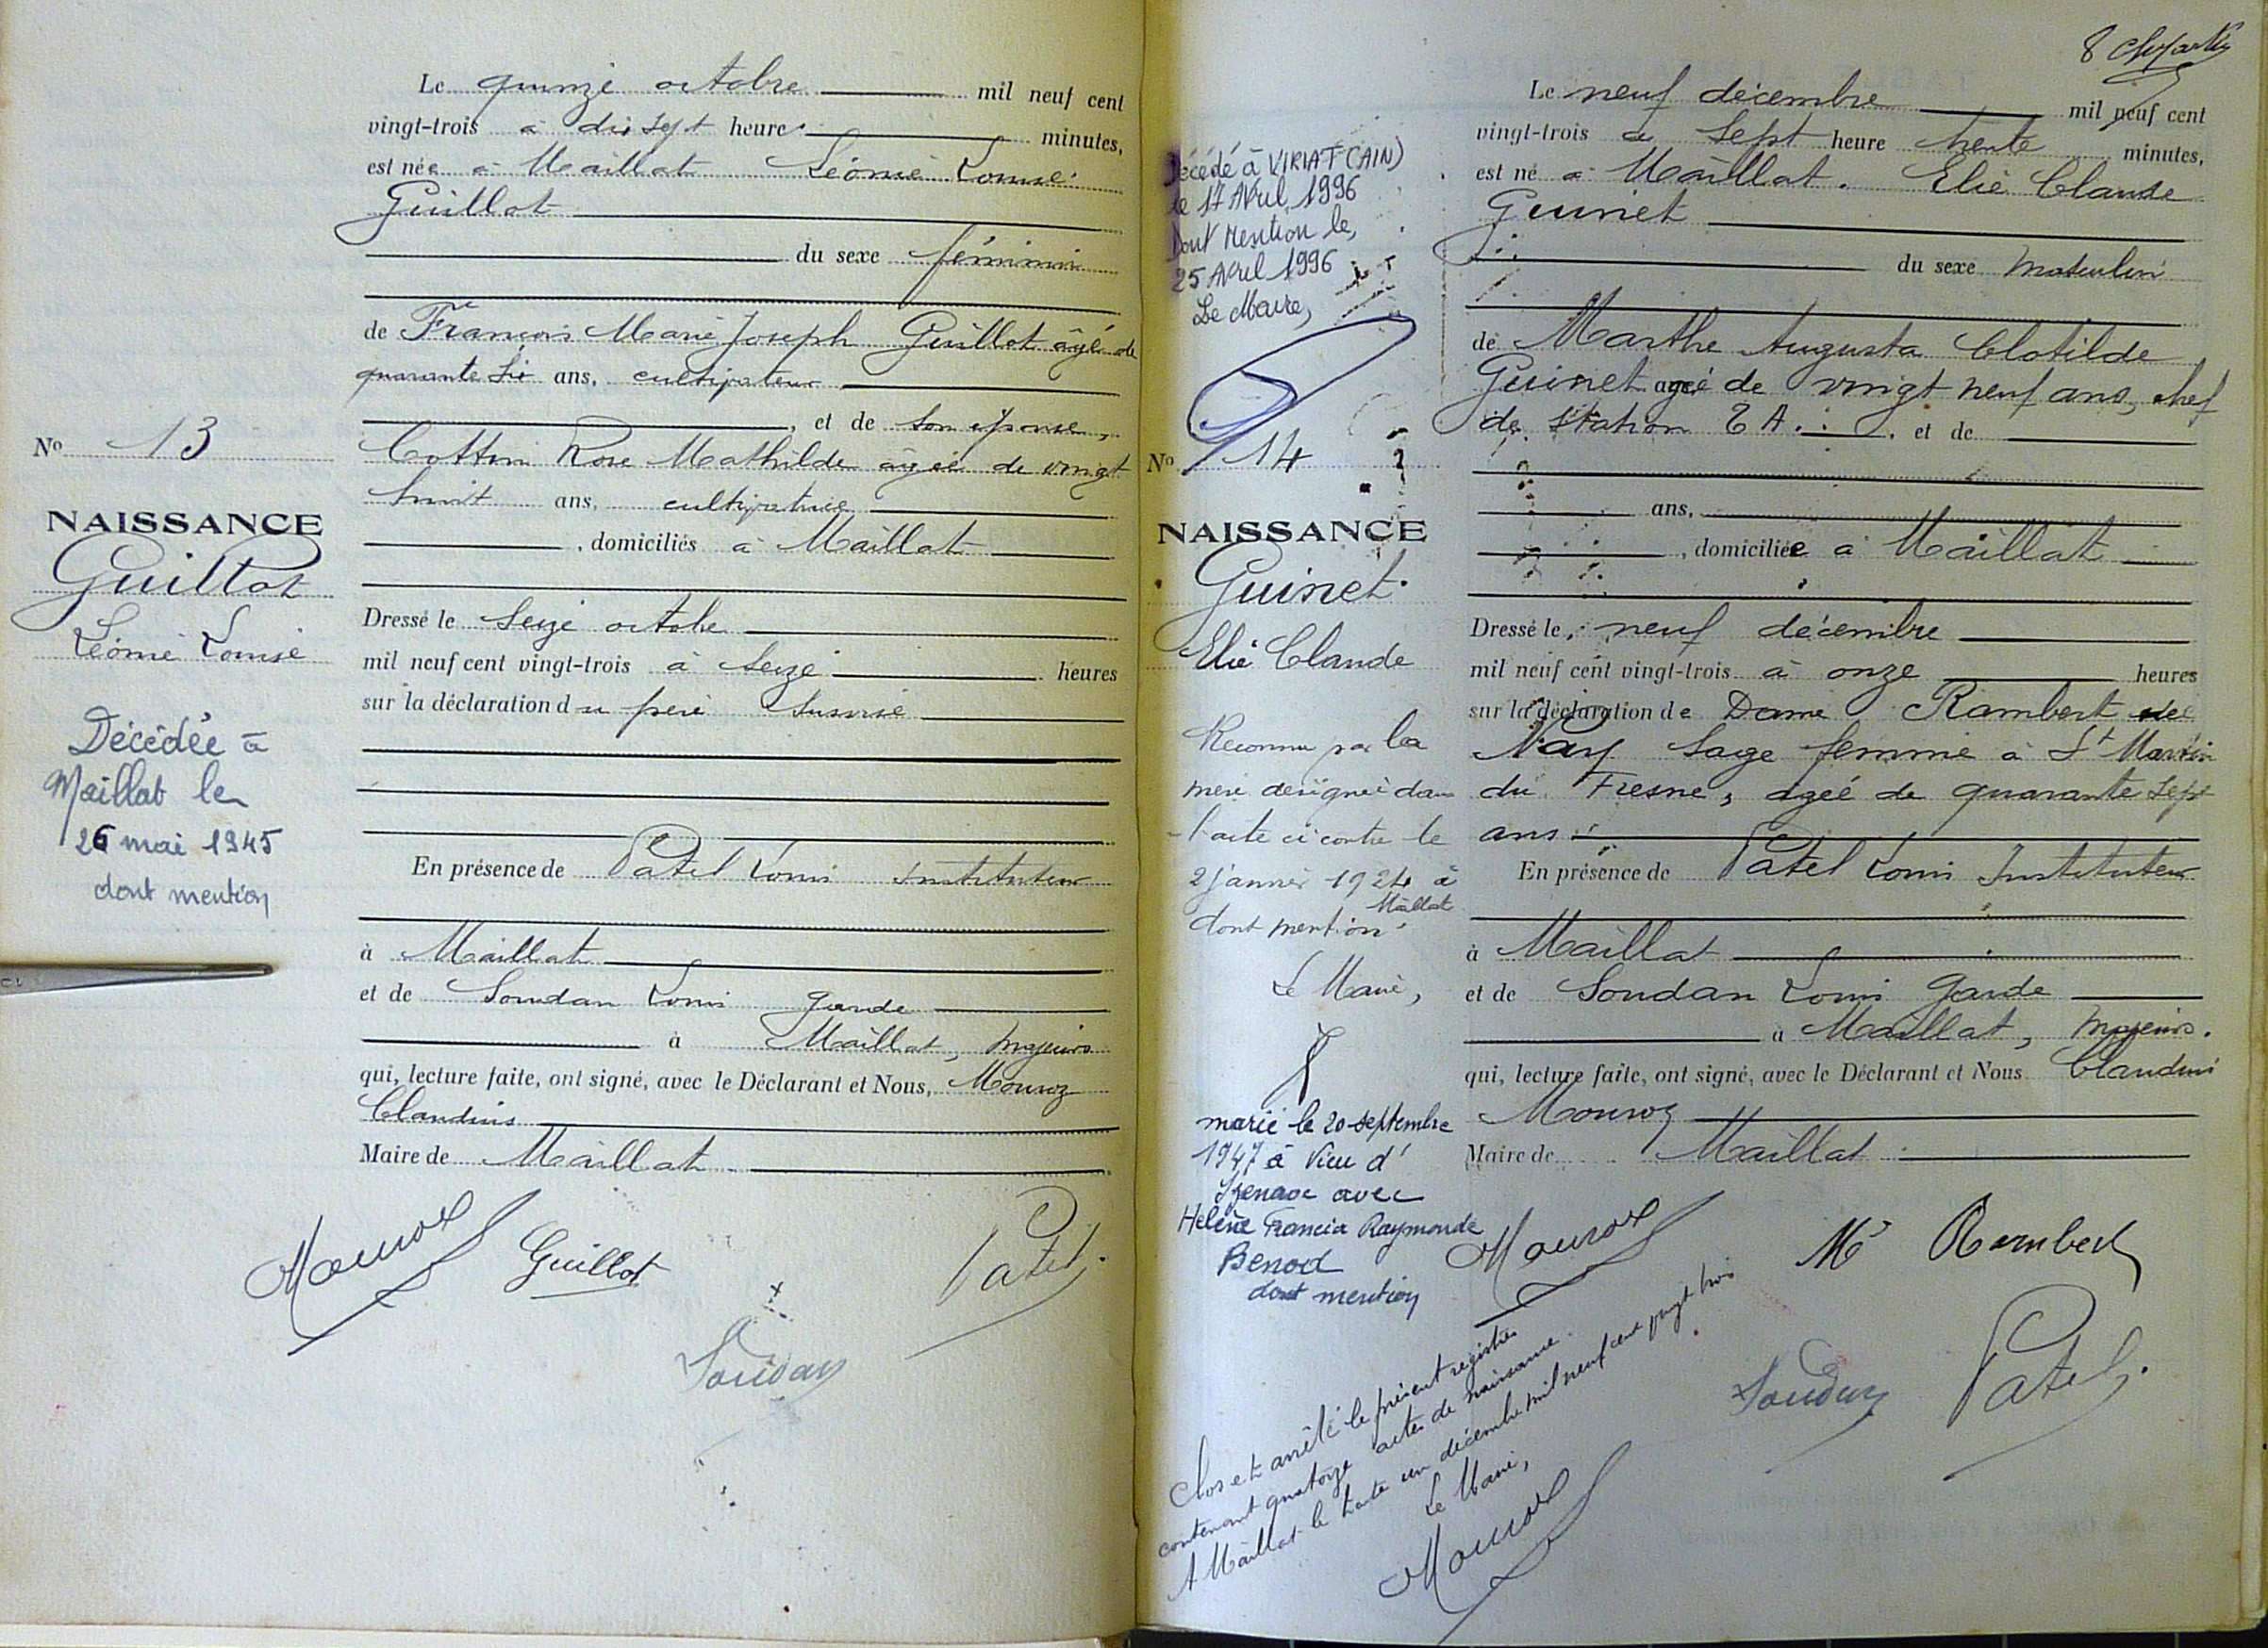 Le quinze octobre mil neuf cent
vingt-trois à dix sept heures minutes,
est née à Maillat Léonie Louise
Guillot
du sexe féminin
de François Marie Joseph Guillot âgé de
quarante six ans, cultivateur
, et de son épouse,
Cottin Rose Mathilde âgée de vingt
huit ans, cultivatrice
, domiciliés à Maillat
Dressé le seize octobre
mil neuf cent vingt-trois à seize heures
sur la déclaration du père susvisé
En présence de Patel Louis Instituteur
à Maillat
et de Soudan Louis garde
à Maillat, majeurs
qui, lecture faite, ont signé, avec le Déclarant et Nous, Mouroz
Claudius
Maire de Maillat
Mouroz Guillot Patel.
Soudan
No 13
NAISSANCE
Guillot
Léonie Louise
Décédée à
Maillat le
26 mai 1945
dont mention
8
Le neuf décembre mil neuf cent
vingt-trois à sept heure trente minutes,
est né à Maillat. Elie Claude
Guinet
du sexe masculin
de Marthe Augusta Clotilde
Guinet agée de vingt neuf ans, chef
de station T A. et de
ans,
, domiciliée à Maillat
Dressé le, neuf décembre
mil neuf cent vingt-trois à onze heures
sur la déclaration de Dame Rambert née
Nay sage femme à St Martin
du Fresne, agée de quarante sept
ans
En présence de Patel Louis Instituteur
à Maillat
et de Soudan Louis garde
à Maillat, majeurs.
qui, lecture faite, ont signé, avec le Déclarant et Nous Claudius
Mouroz
Maire de Maillat
Mouroz Me Rambert
Soudan Patel.
Décédé à VIRIAT (AIN)
le 17 Avril 1996
Dont Mention le,
25 Avril 1996
Le Maire,
No 14
NAISSANCE
Guinet
Elie Claude
Reconnu par la
mère désignée dans
l'acte ci contre le
2 janvier 1924 à
Maillat
dont mention.
Le Maire,
marié le 20 septembre
1947 à Vieu d'
Izenave avec
Hélène Francia Raymonde
Benod
dont mention
Clos et arrêté le présent registre
contenant quatorze actes de naissance.
A Maillat le trente un décembre mil neuf cent vingt trois
Le Maire,
Mouroz